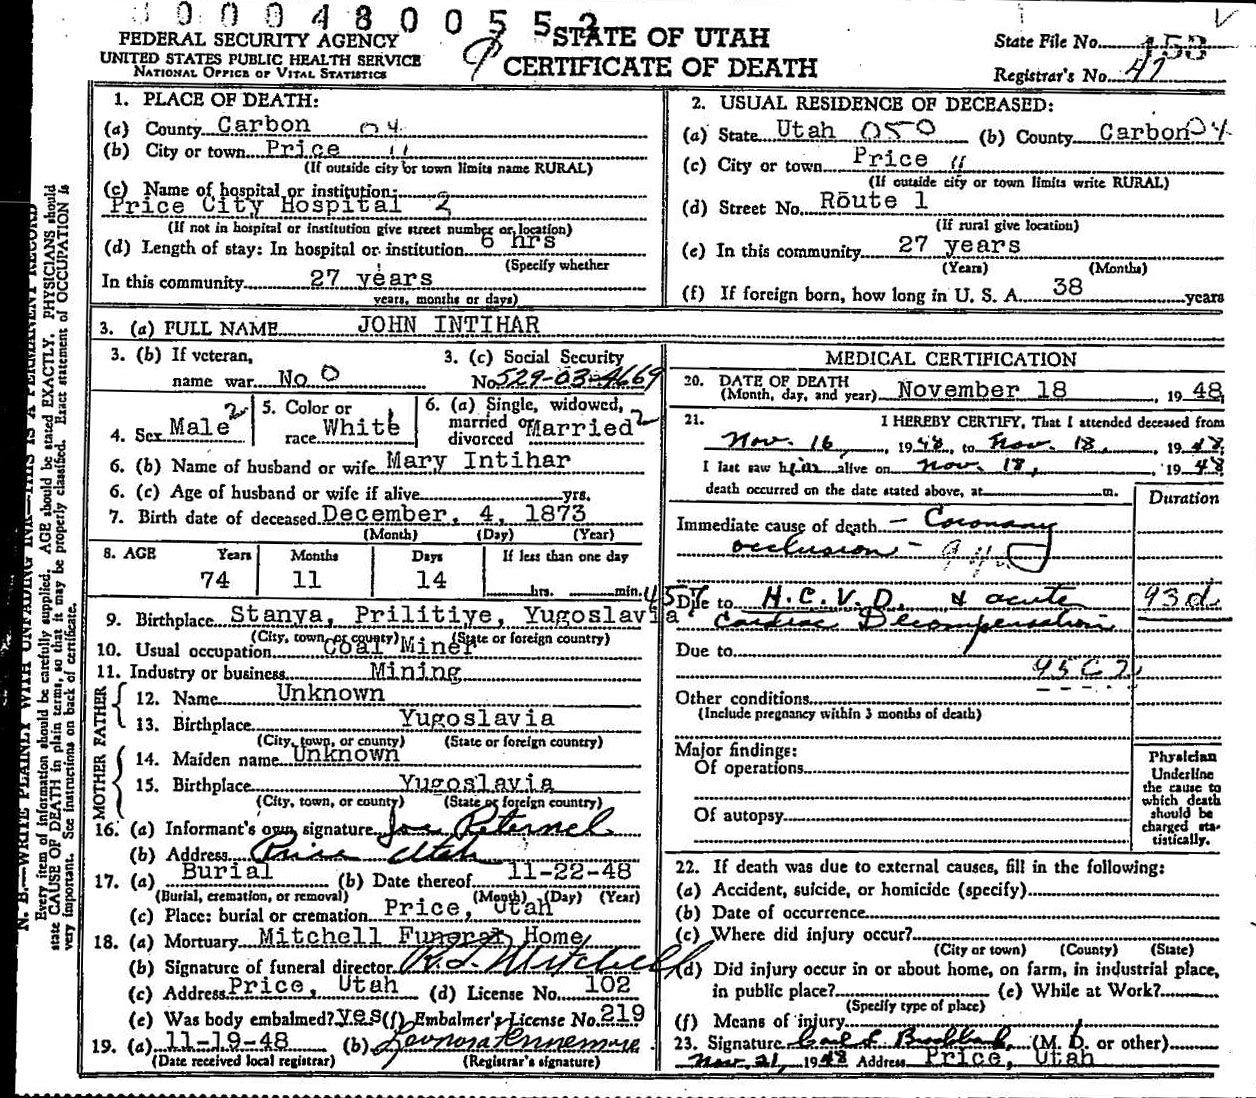 0004800552
FEDERAL SECURITY AGENCY
UNITED STATES PUBLIC HEALTH SERVICE
NATIONAL OFFICE OF VITAL STATISTICS
STATE OF UTAH
CERTIFICATE OF DEATH
State File No. 153
Registrar's No. 47
1. PLACE OF DEATH:
(a) County Carbon 04
(b) City or town Price 11
(If outside city or town limits name RURAL)
(c) Name of hospital or institution:
Price City Hospital 2
(If not in hospital or institution give street number or location)
(d) Length of stay: In hospital or institution 6 hrs
(Specify whether
In this community 27 years
years, months or days)
2. USUAL RESIDENCE OF DECEASED:
(a) State Utah 050 (b) County Carbon 04
(c) City or town Price 11
(If outside city or town limits write RURAL)
(d) Street No. Route 1
(If rural give location)
(e) In this community 27 years
(Years) (Months)
(f) If foreign born, how long in U. S. A. 38 years
3. (a) FULL NAME JOHN INTIHAR
3. (b) If veteran,
name war No 0
3. (c) Social Security
No. 529-03-4669
4. Sex Male 2
5. Color or
race White 1
6. (a) Single, widowed,
married or
divorced Married 2
6. (b) Name of husband or wife Mary Intihar
6. (c) Age of husband or wife if alive yrs.
7. Birth date of deceased December, 4, 1873
(Month) (Day) (Year)
8. AGE Years Months Days If less than one day
74 11 14 hrs. min.
9. Birthplace Stanya, Prilitiye, Yugoslavia
(City, town or county) (State or foreign country)
10. Usual occupation Coal Miner 457
11. Industry or business Mining
FATHER
12. Name Unknown
13. Birthplace Yugoslavia
(City, town, or county) (State or foreign country)
MOTHER
14. Maiden name Unknown
15. Birthplace Yugoslavia
(City, town, or county) (State or foreign country)
16. (a) Informant's own signature Joe Peternel
(b) Address Price Utah
17. (a) Burial (b) Date thereof 11-22-48
(Burial, cremation, or removal) (Month) (Day) (Year)
(c) Place: burial or cremation Price, Utah
18. (a) Mortuary Mitchell Funeral Home
(b) Signature of funeral director R. L. Mitchell
(c) Address Price, Utah (d) License No. 102
(e) Was body embalmed? yes (f) Embalmer's License No. 219
19. (a) 11-19-48 (b)
(Date received local registrar) (Registrar's signature)
MEDICAL CERTIFICATION
20. DATE OF DEATH
(Month, day, and year) November 18, 1948
21. I HEREBY CERTIFY, That I attended deceased from
Nov. 16, 1948, to Nov. 18, 1948,
I last saw him alive on Nov. 18, 1948,
death occurred on the date stated above, at m.
Duration
Immediate cause of death - Coronary
occlusion -
Due to H.C.V.D. & acute 93d
Cardiac Decompensation
Due to
Other conditions
(Include pregnancy within 3 months of death)
Major findings:
Of operations
Of autopsy
Physician
Underline
the cause to
which death
should be
charged sta-
tistically.
22. If death was due to external causes, fill in the following:
(a) Accident, suicide, or homicide (specify)
(b) Date of occurrence
(c) Where did injury occur?
(City or town) (County) (State)
(d) Did injury occur in or about home, on farm, in industrial place,
in public place? (e) While at Work?
(Specify type of place)
(f) Means of injury
23. Signature (M. D. or other)
Nov. 21, 1948 Address Price, Utah
N. B.—WRITE PLAINLY WITH UNFADING INK—THIS IS A PERMANENT RECORD
Every item of information should be carefully supplied. AGE should be stated EXACTLY. PHYSICIANS should
state CAUSE OF DEATH in plain terms, so that it may be properly classified. Exact statement of OCCUPATION is
very important. See instructions on back of certificate.